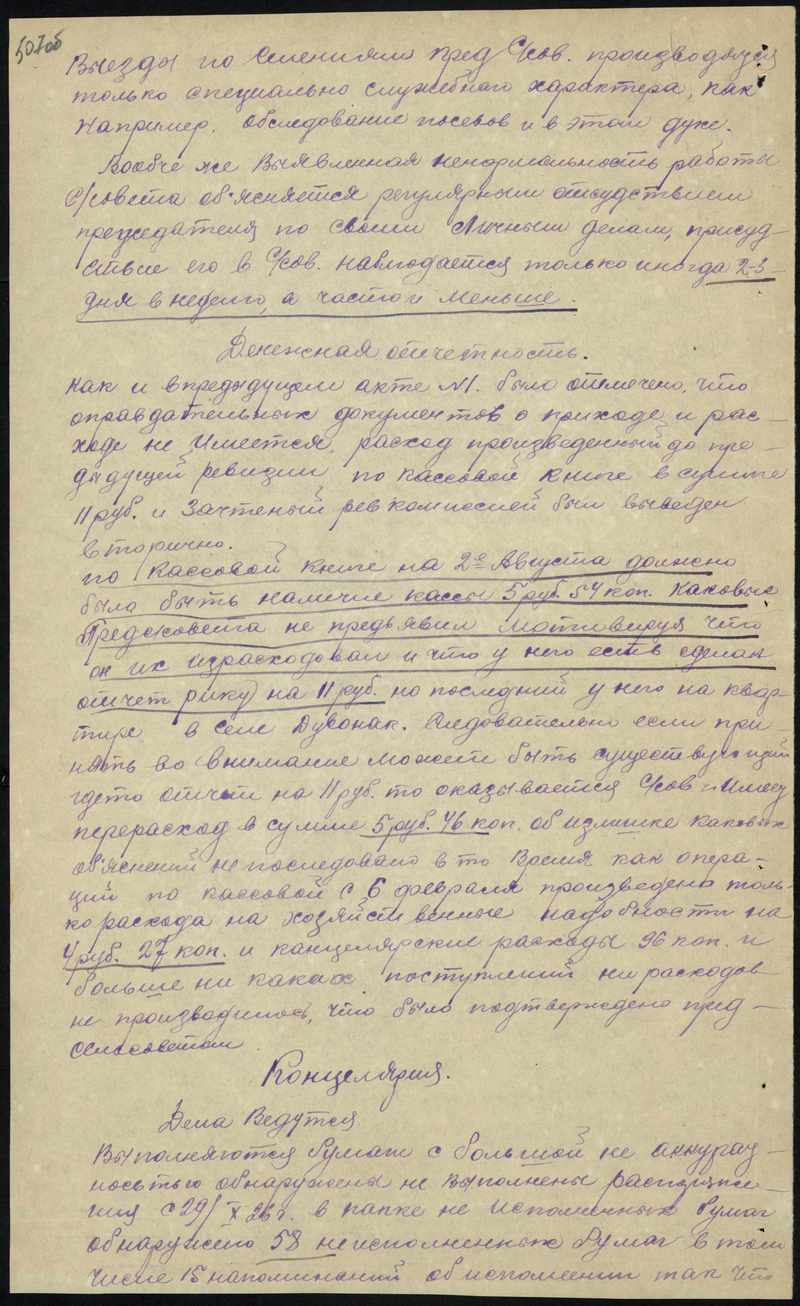 507об
Выезды по Селениям пред С/сов. производятся
только специально служебного характера, как
Например. обследование посевов и в этом духе.
Вообче же Выявленная ненормальность работы
С/совета об'ясняется регулярным отсудствием
председателя по своим Личным делам, присуд-
ствие его в С/сов. наблюдается только иногда 2-3-
дня в неделю, а часто и Меньше.
Денежная отчетность.
Как и впредыдущем акте №1. было отмечено, что
оправдательных документов о приходе и рас-
ходе не Имеется, расход произведенный до пре-
дыдущей ревизии по кассовой книге в сумме
11 руб. и Зачтеный ревкомиссией был выведен
вторично.
по Кассовой Книге на 2е Августа должно
было быть наличие кассы 5 руб. 54 коп. Каковые
Предсовета не предъявил мотивируя что
он их израсходовал и что у него есть сделан
отчет рику на 11 руб. но последний у него на квар-
тире в селе Дувонак. Следовательно если при-
нять во внимание Может быть существующий
гдето отчет на 11 руб. то оказывается С/сов Имеет
перерасход в сумме 5 руб. 46 коп. об излишке каковых
об'яснений не последовало в то Время как опера-
ций по кассовой с 6 февраля произведено толь-
ко расхода на хозяйственные надобности на
4 руб. 27 коп. и канцелярские расходы 96 коп. и
больше ни каких поступлений ни расходов
не производилось, что было подтверждено пред-
сельсоветом.
Концелярия.
Дела Ведутся
Выполняются бумаги с большой не аккурат-
ностью обнаружены не выполнены распоряже-
ния с 29/X 26 г. в папке не исполненных бумаг
обнаружено 58 неисполненных бумаг в том
числе 15 напоминаний об исполнении так что